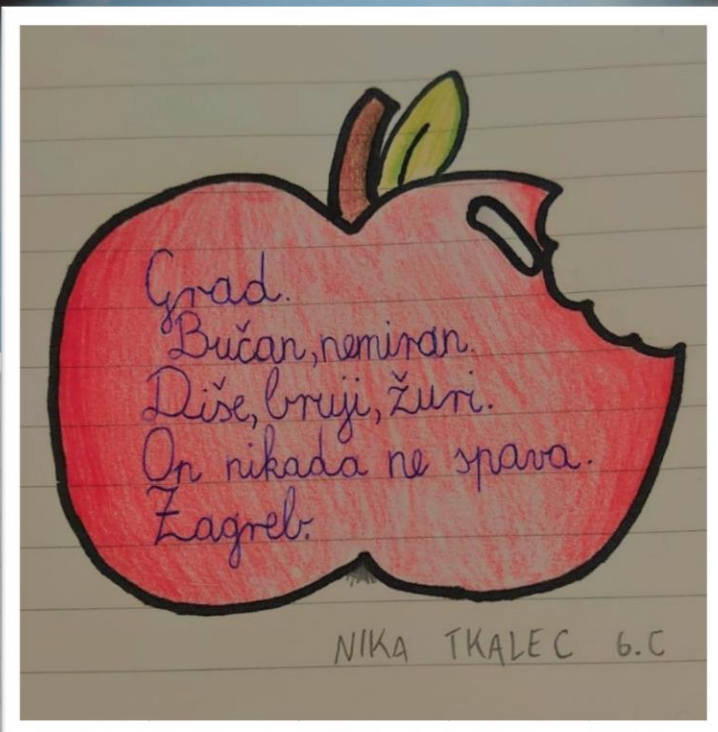 Grad.
Bučan, nemiran.
Diše, bruji, žuri.
On nikada ne spava.
Zagreb.
NIKA TKALEC 6.C